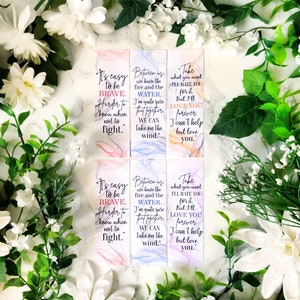 "It's easy
to be
BRAVE.
Harder to
know when
not to
fight."
"Between us,
we have the
fire and the
WATER.
I'm quite sure
that together,
WE CAN
take on the
wind."
"Take
what you want.
I'LL HATE YOU
for it.
But I'll
LOVE YOU
forever.
I can't help
but love
you."
"It's easy
to be
BRAVE.
Harder to
know when
not to
fight."
"Between us,
we have the
fire and the
WATER.
I'm quite sure
that together,
WE CAN
take on the
wind."
"Take
what you want.
I'LL HATE YOU
for it.
But I'll
LOVE YOU
forever.
I can't help
but love
you."